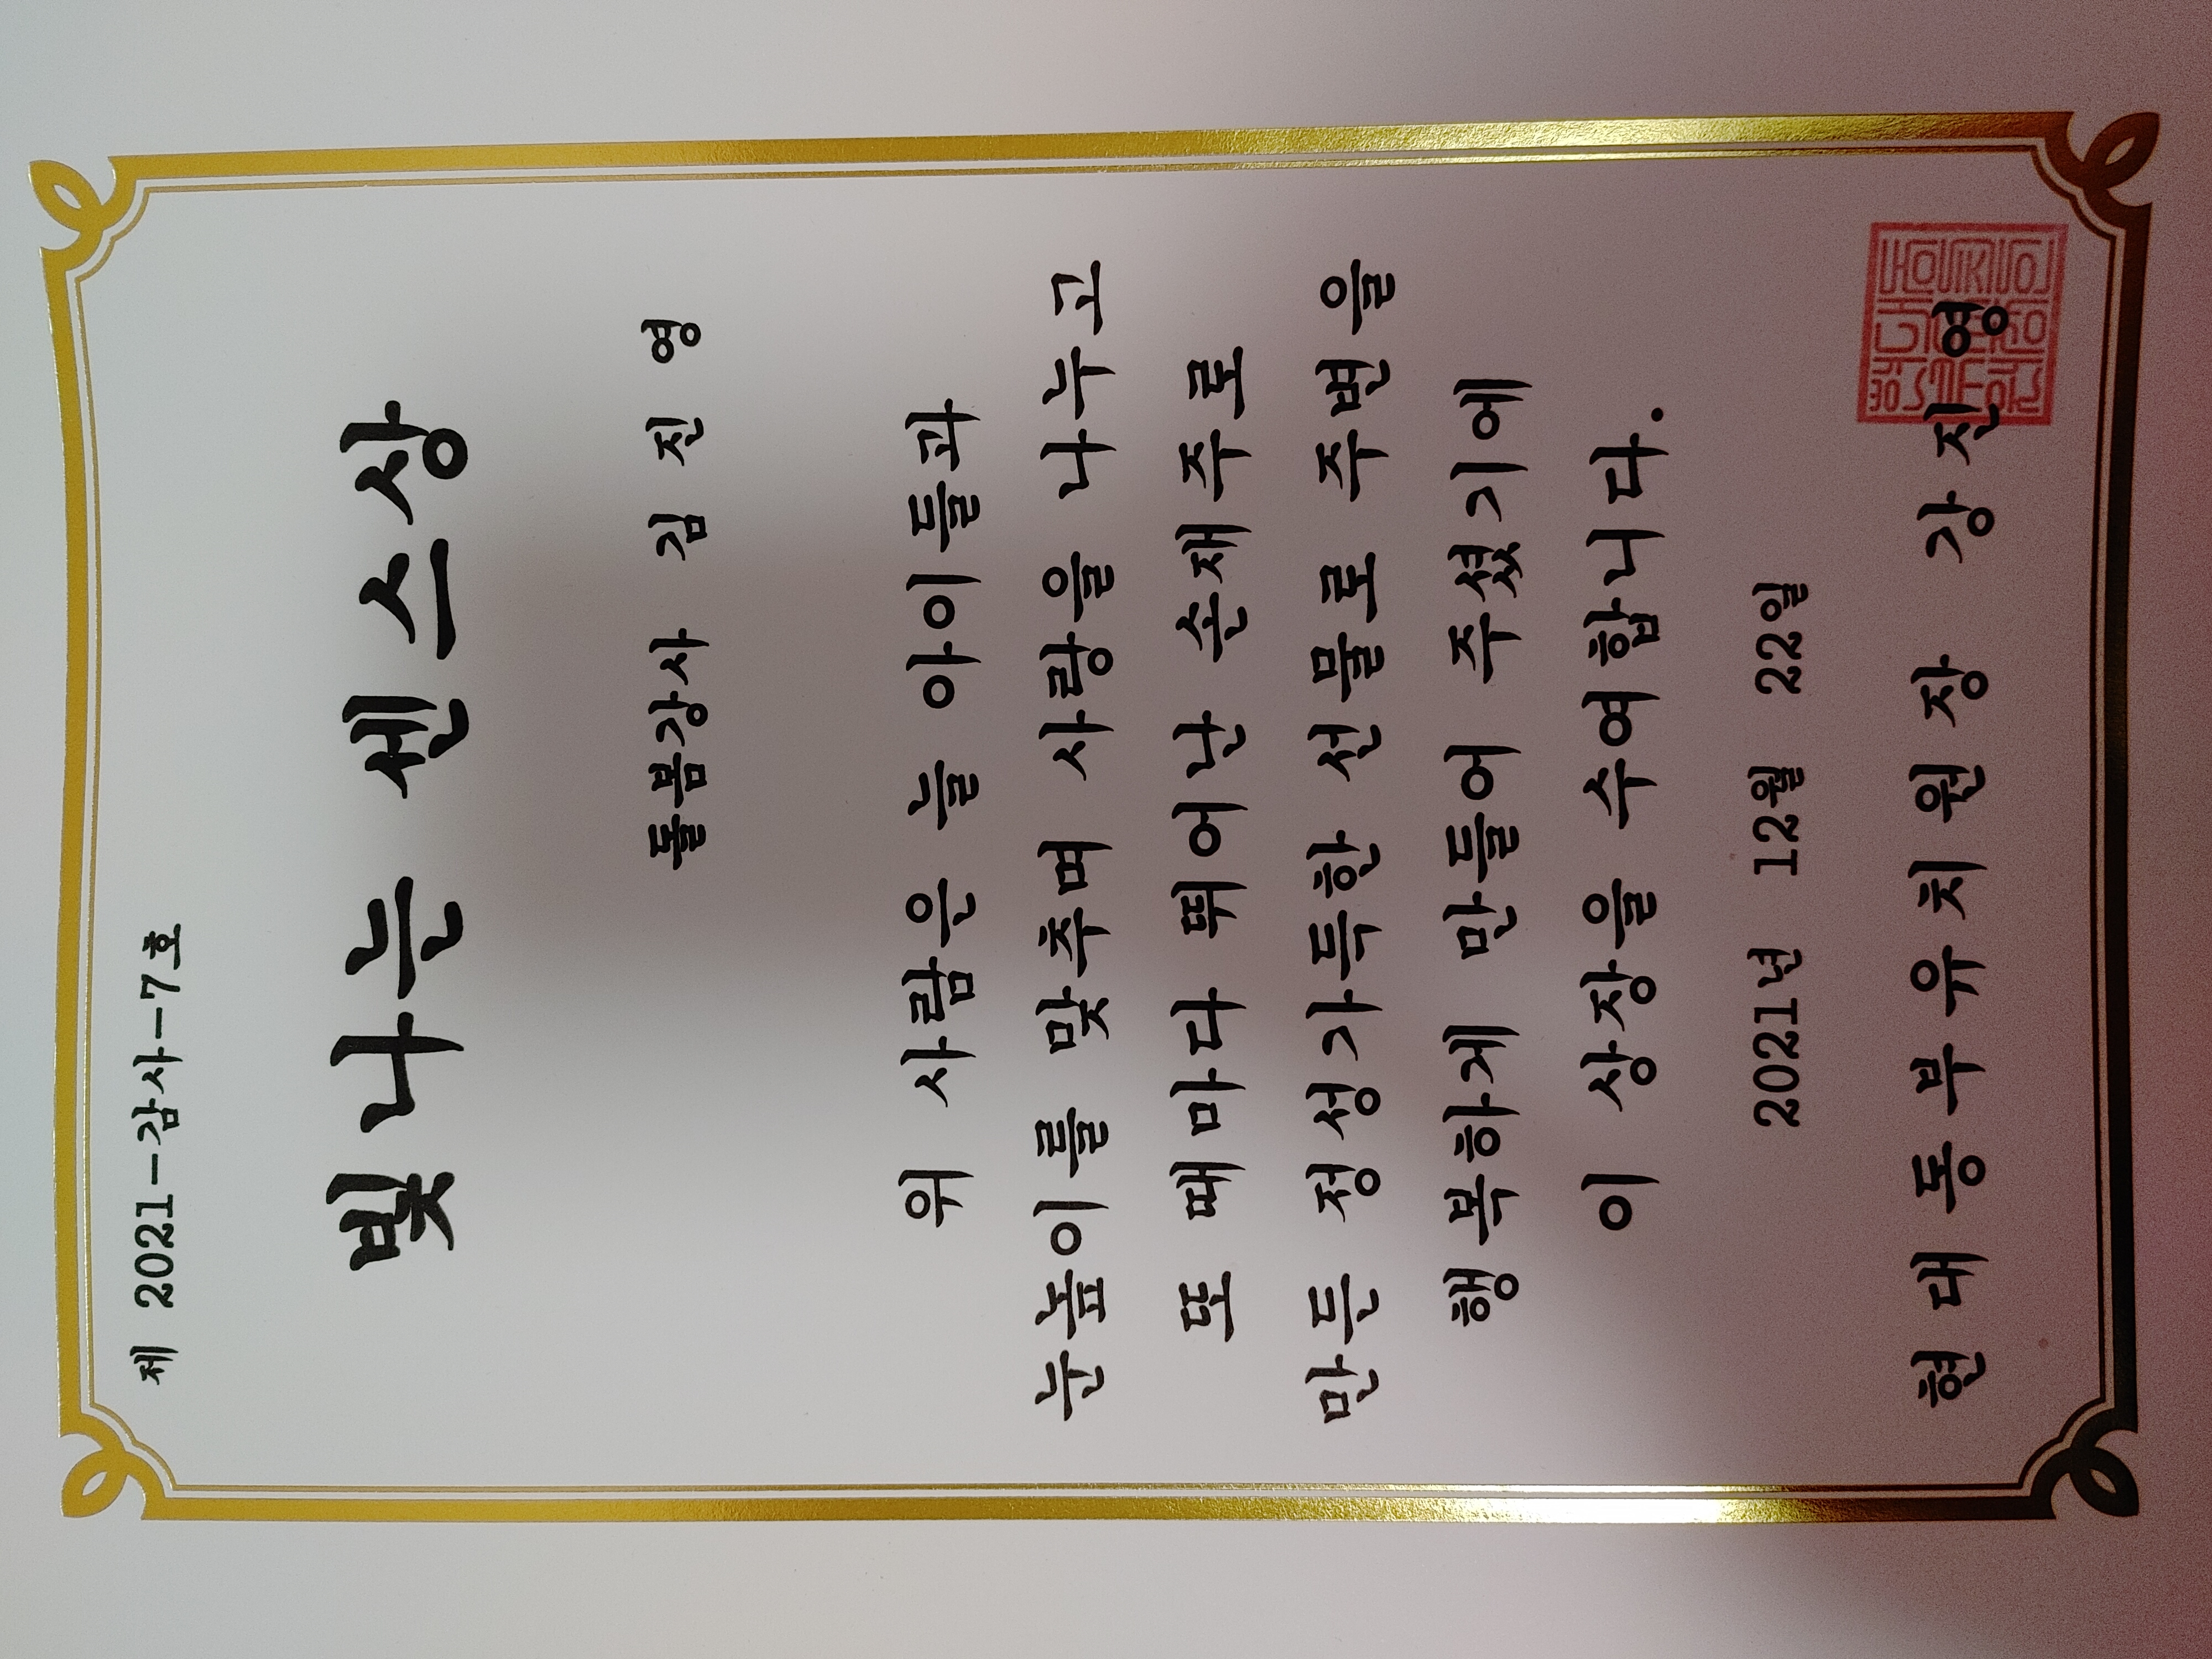 제 2021-감사-7호
빛나는 센스상
돌봄강사 김 진 영
위 사람은 늘 아이들과
눈높이를 맞추며 사랑을 나누고
또 때마다 뛰어난 손재주로
만든 정성가득한 선물로 주변을
행복하게 만들어 주셨기에
이 상장을 수여합니다.
2021년 12월 22일
현대동부유치원장 강진영